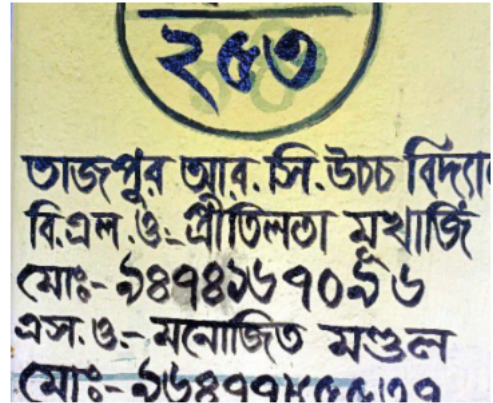 ২৫৩
তাজপুর আর.সি.উচ্চ
বি.এল.ও.- প্রীতিলতা মুখার্জি
মোঃ- ৯৪৭৪৯৬৭০৯৬
এস.ও.- মনোজিত মণ্ডল
মোঃ-